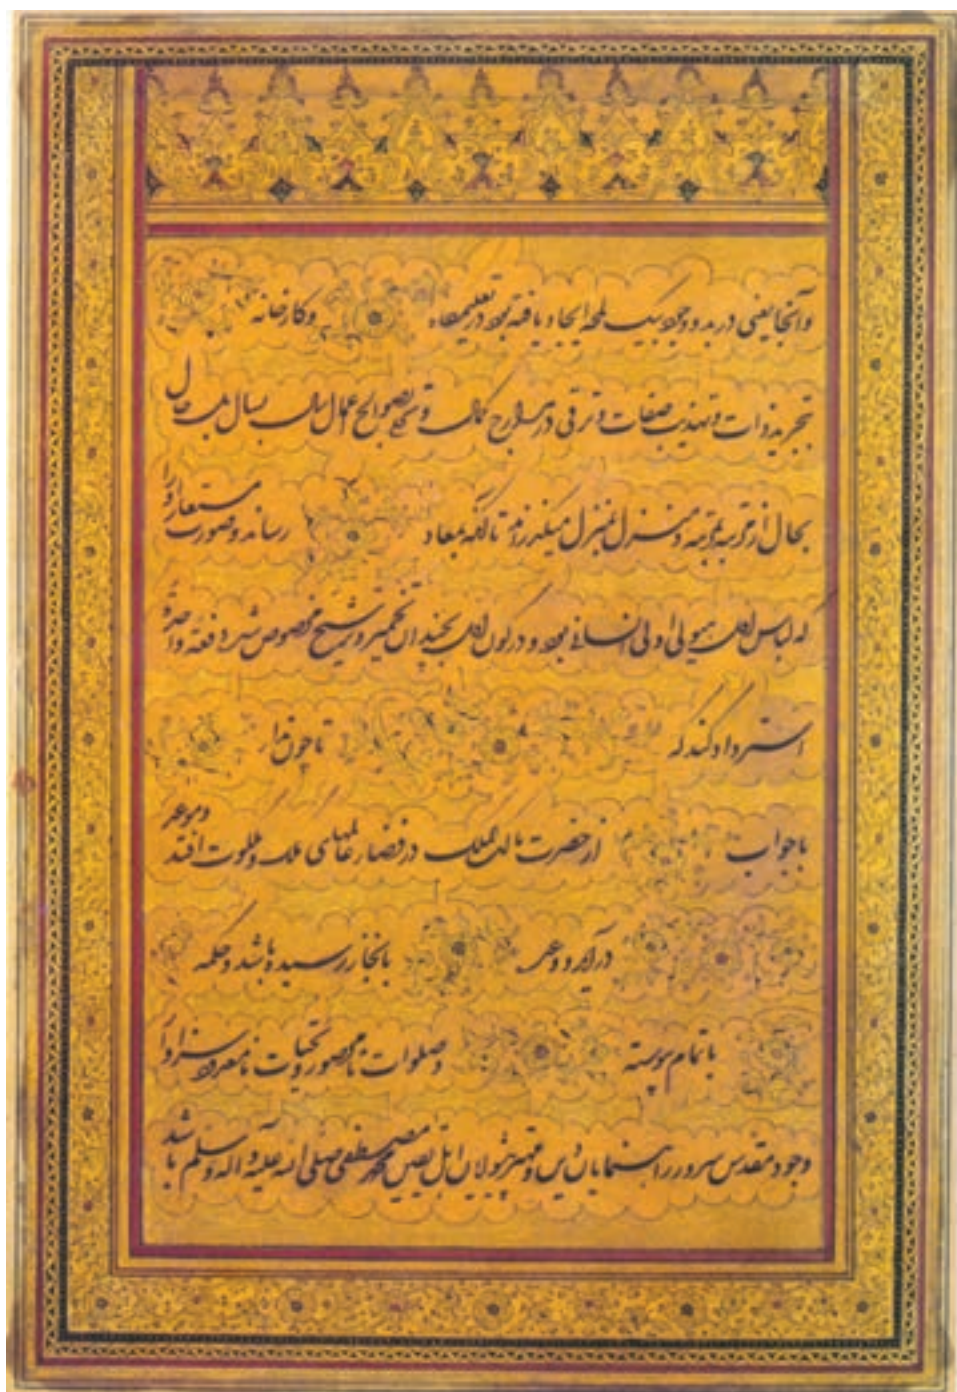 و آنجا یعنی در بدو وجود بیک لمحه ایجاد یافته بود در تعلیمگاه و کارخانه
تجرید ذات و تهذیب صفات و ترقی در مدارج کمال و توجه بصوالح اعمال سال بسال بل حال
بحال از مرتبه بمرتبه و منزل بمنزل میگذراند تا آنکه بمعاد رساند و صورت مستعار را
که لباس هیولی اولی انسانی بود و در کون بچندان تخمیر و ترشیح مخصوص شد دفعة واحدة
استرداد کند که تا چون ندا
با جواب از حضرت مالک الملک در فضاء عالمهای ملک و ملکوت افتد و موعد
در آید و وعده بانجاز رسیده باشد و حکمه
با تمام پیوسته و صلوات نامحصور و تحیات نامعدود سزاوار
وجود مقدس سرور راهنمایان دین و مهتر اهل یقین محمد مصطفی صلی الله علیه و آله و سلم باشد